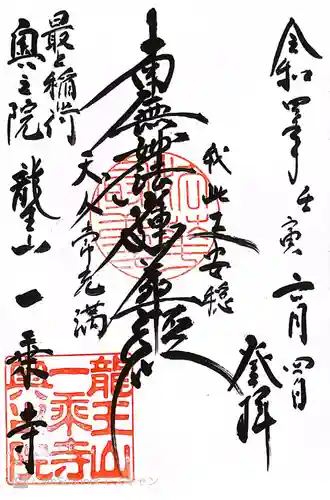 令和四年壬寅六月四日
登拝
我此土安穏
南無妙法蓮華経
天人常充満
最上稲荷
奥之院 龍王山 一乗寺
龍王山
一乗寺
奥之院